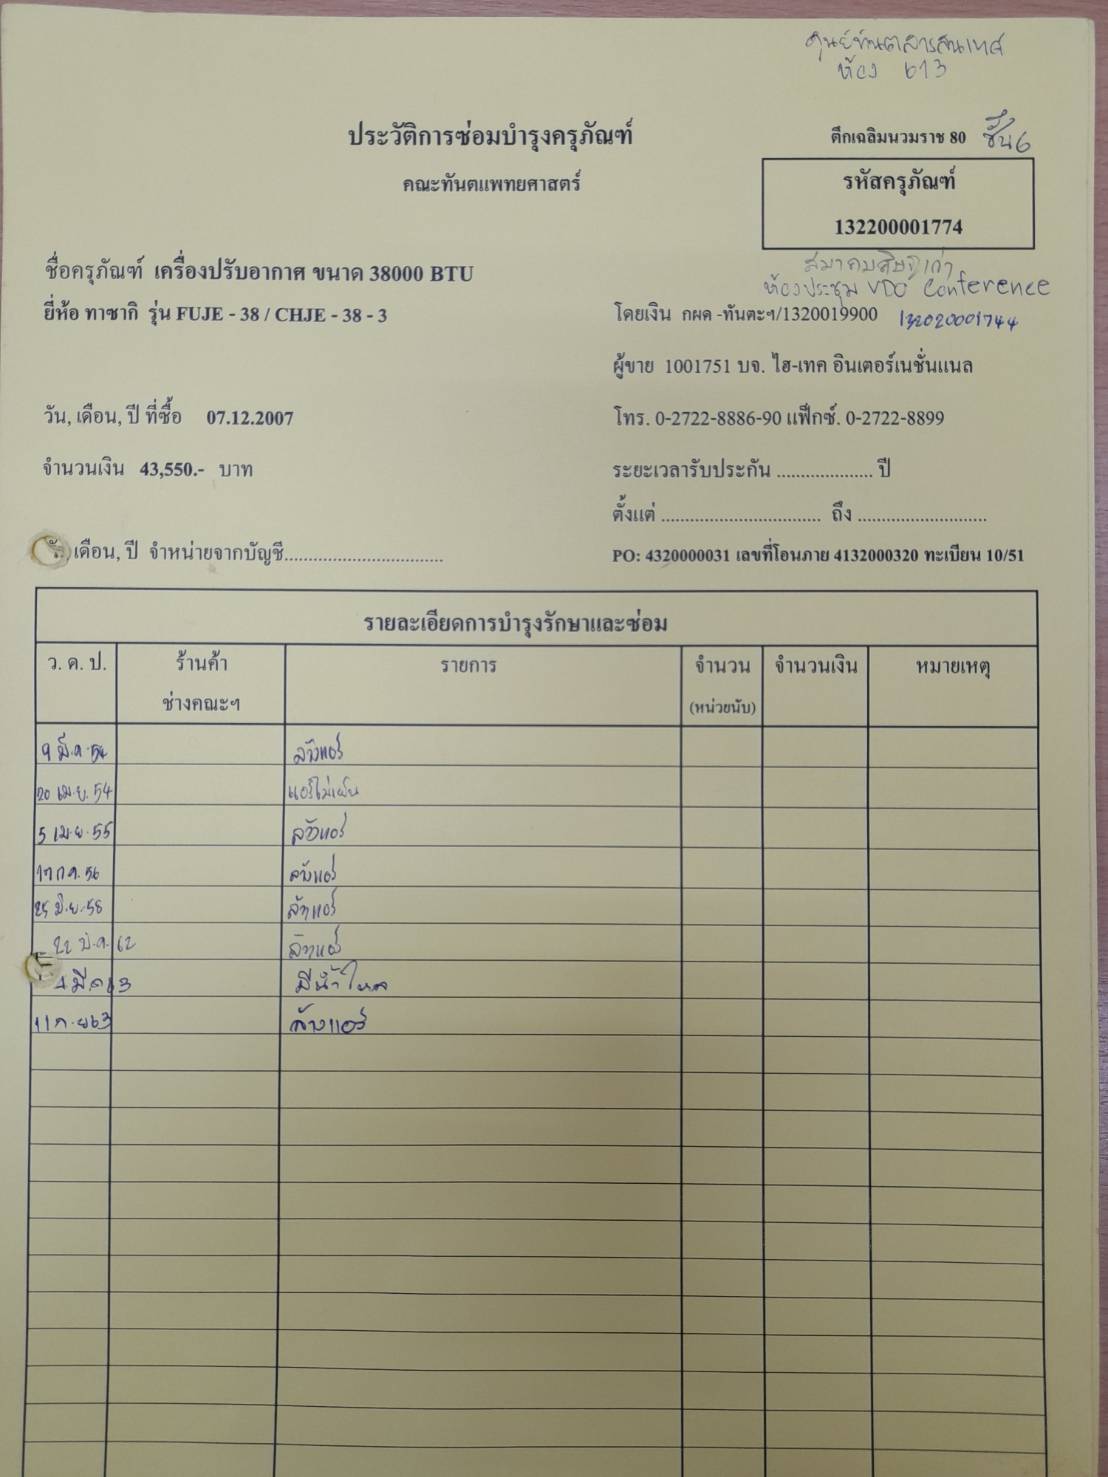 ศูนย์ทันตสารสนเทศ
ห้อง 613
ประวัติการซ่อมบำรุงครุภัณฑ์
ตึกเฉลิมนวมราช 80 ชั้น 6
คณะทันตแพทยศาสตร์
รหัสครุภัณฑ์
132200001774
ชื่อครุภัณฑ์ เครื่องปรับอากาศ ขนาด 38000 BTU
สมาคมศิษย์เก่า
ห้องประชุม VDO Conference
ยี่ห้อ ทาซากิ รุ่น FUJE - 38 / CHJE - 38 - 3
โดยเงิน กผด -ทันตะฯ/1320019900 132020001744
ผู้ขาย 1001751 บจ. ไฮ-เทค อินเตอร์เนชั่นแนล
วัน, เดือน, ปี ที่ซื้อ 07.12.2007
โทร. 0-2722-8886-90 แฟ็กซ์. 0-2722-8899
จำนวนเงิน 43,550.- บาท
ระยะเวลารับประกัน ................... ปี
ตั้งแต่ ................................ ถึง ..........................
เดือน, ปี จำหน่ายจากบัญชี................................
PO: 4320000031 เลขที่โอนภาย 4132000320 ทะเบียน 10/51
รายละเอียดการบำรุงรักษาและซ่อม
ว. ด. ป. ร้านค้า รายการ จำนวน จำนวนเงิน หมายเหตุ
ช่างคณะฯ (หน่วยนับ)
9 มี.ค. 54 ล้างแอร์
20 เม.ย. 54 แอร์ไม่เย็น
5 เม.ย. 55 ล้างแอร์
17 ก.ค. 56 ล้างแอร์
25 มิ.ย. 58 ล้างแอร์
22 มี.ค. 62 ล้างแอร์
4 มีค 63 มีน้ำไหล
11 ก.ย 63 ล้างแอร์